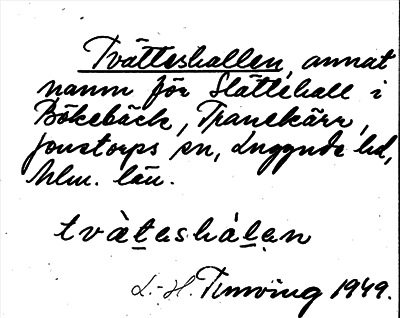 Tvätteshallen, annat
namn för Slättehall i
Bökebäck, Tranekärr,
Jonstorps sn, Luggude hd,
Mlm. län.
tvàteshálen
L.-H. 1949.